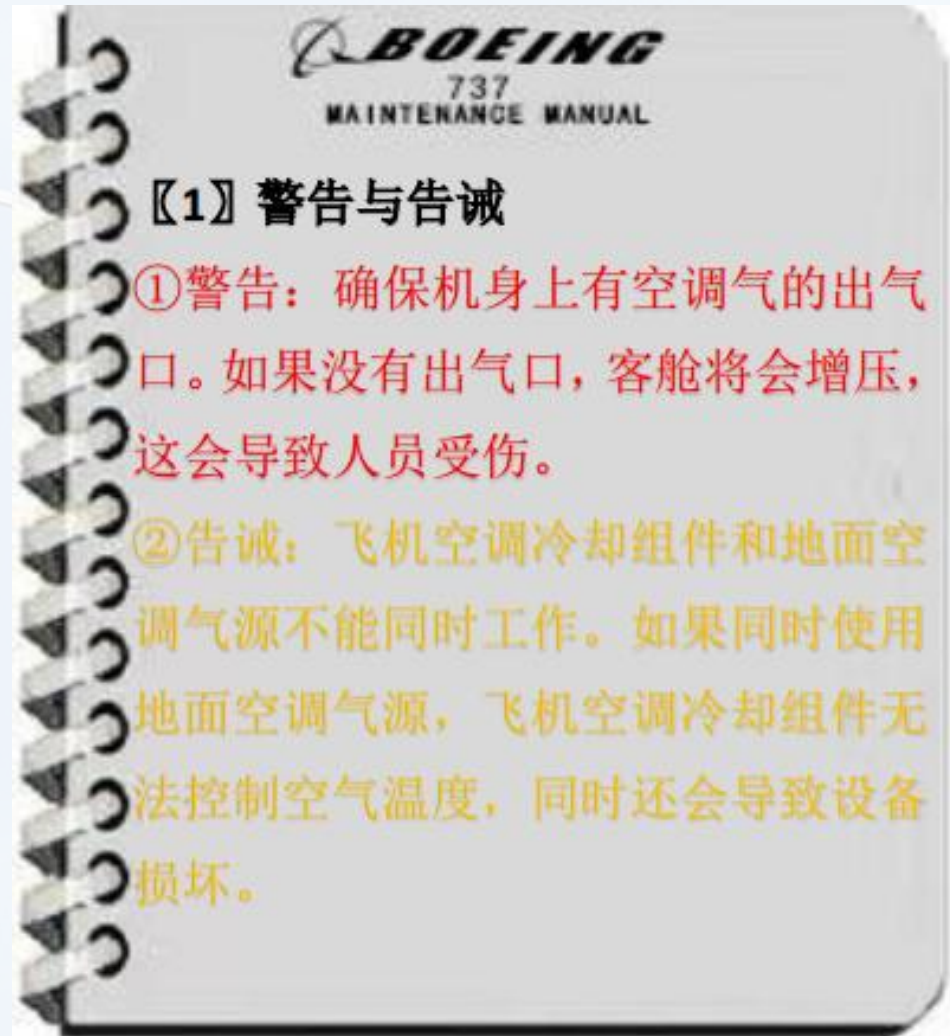 BOEING
737
MAINTENANCE MANUAL
〖1〗警告与告诫
①警告：确保机身上有空调气的出气
口。如果没有出气口，客舱将会增压，
这会导致人员受伤。
②告诫：飞机空调冷却组件和地面空
调气源不能同时工作。如果同时使用
地面空调气源，飞机空调冷却组件无
法控制空气温度，同时还会导致设备
损坏。